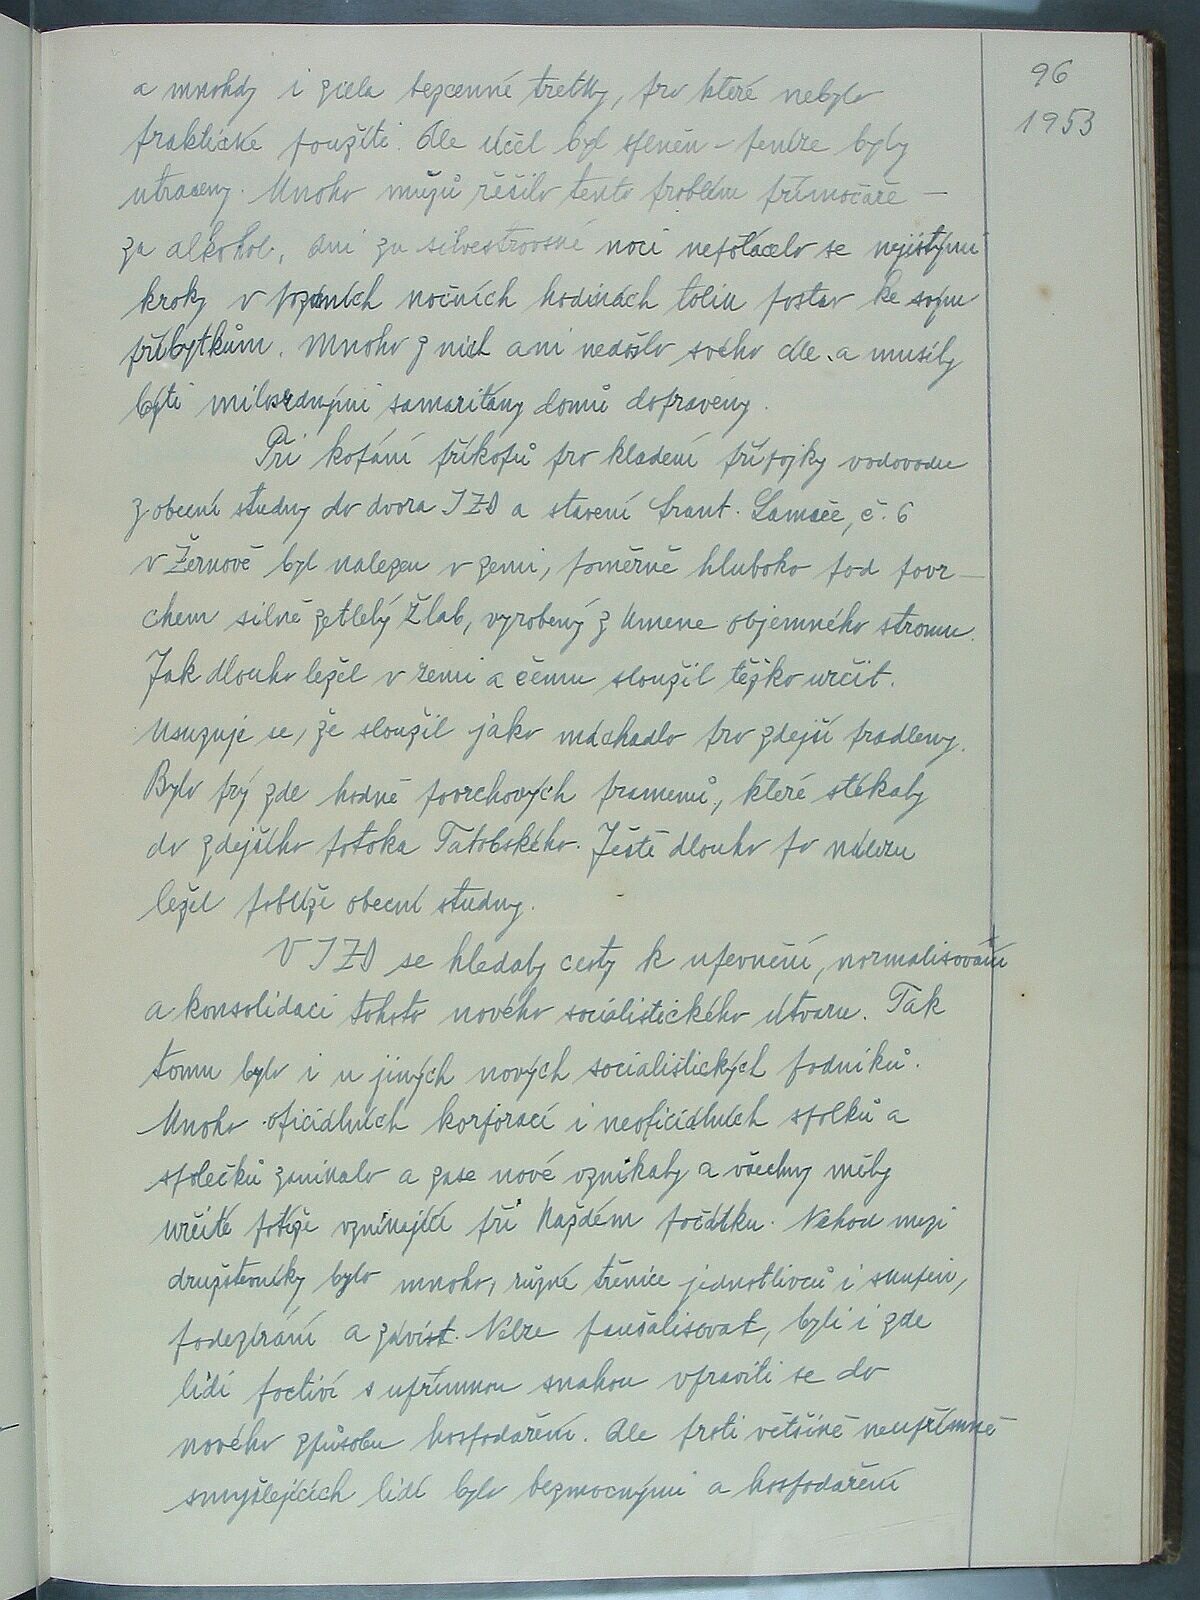 96
1953
a mnohdy i zcela bezcenné tretky, pro které nebylo
praktické použití. Ale účel byl splněn – peníze byly
utraceny. Mnoho mužů řešilo tento problém přímočaře –
za alkohol. Ani za silvestrovské noci nepotácelo se nejistými
kroky v pozdních nočních hodinách tolik postav ke svým
příbytkům. Mnoho z nich ani nedošlo svého cíle a musily
býti milosrdnými samaritány domů dopraveny.
Při kopání příkopů pro kladení přípojky vodovodu
z obecní studny do dvora JZD a stavení Frant. Lamače, č. 6
v Žernově byl nalezen v zemi, poměrně hluboko pod povr-
chem silně zetlelý žlab, vyrobený z kmene objemného stromu.
Jak dlouho ležel v zemi a čemu sloužil těžko určit.
Usuzuje se, že sloužil jako máchadlo pro zdejší pradleny.
Bylo prý zde hodně povrchových pramenů, které stékaly
do zdejšího potoka Tatobského. Ještě dlouho po nálezu
ležel poblíže obecní studny.
V JZD se hledaly cesty k upevnění, normalisování
a konsolidaci tohoto nového socialistického útvaru. Tak
tomu bylo i u jiných nových socialistických podniků.
Mnoho oficiálních korporací i neoficiálních spolků a
společků zanikalo a zase nové vznikaly a všechny měly
určité potíže vznikající při každém počátku. Nehod mezi
družstevníky bylo mnoho, různé třenice jednotlivců i skupin,
podezírání a závist. Nelze paušalisovat, byli i zde
lidi poctiví s upřímnou snahou vpraviti se do
nového způsobu hospodaření. Ale proti většině neupřímně
smýšlejících lidí bylo bezmocnými a hospodaření